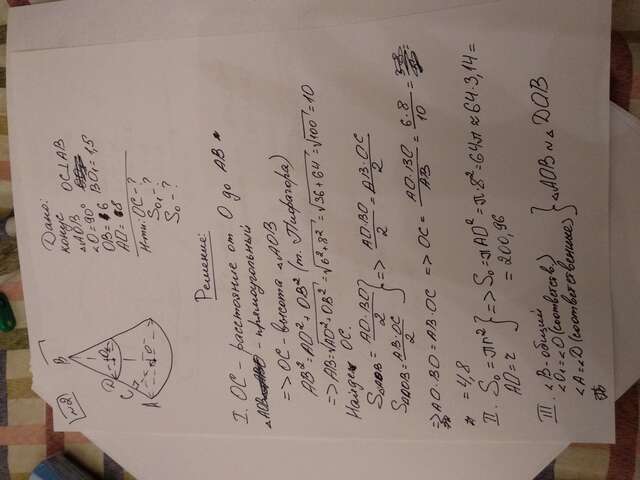 №2
B
D
O₁
C
A
O
Дано:
конус
△AOB
∠O=90°
OB=6
AO=8
OC⊥AB
BO₁=1,5
Н-ти: OC-?
S₀₁-?
S₀-?
Решение:
I. OC - расстояние от O до AB
△AOB - прямоугольный
=> OC - высота △AOB
AB²=AO²+OB² (т. Пифагора)
=> AB=√AO²+OB²=√6²+8²=√36+64=√100=10
Найдем OC.
S△AOB=AO·BO/2
S△AOB=AB·OC/2 } => AO·BO/2=AB·OC/2
=> AO·BO=AB·OC => OC=AO·BO/AB=6·8/10=
=4,8
II. S₀=πr²
AO=r } => S₀=πAO²=π·8²=64π≈64·3,14=
=200,96
III. ∠B-общий
∠O₁=∠O (соответств.)
∠A=∠D (соответственные) } △AOB ~ △DOB